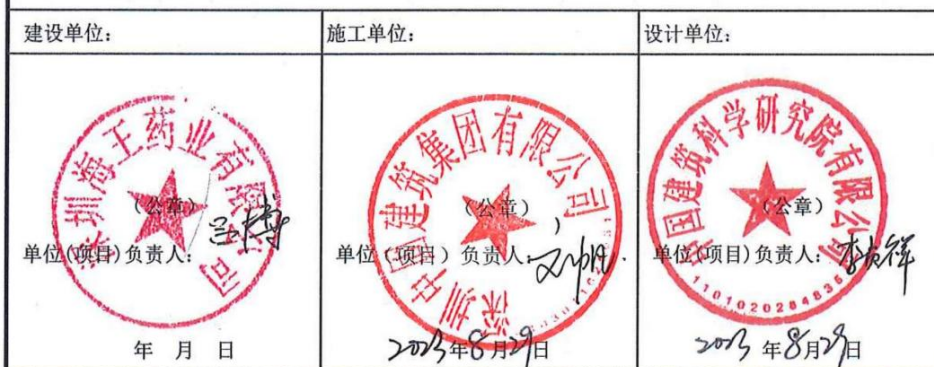 建设单位:
施工单位:
设计单位:
深圳海王药业有限公司
(公章)
单位(项目)负责人:
年 月 日
深圳中国建筑集团有限公司
(公章)
单位(项目)负责人:
2023年8月29日
中国建筑科学研究院有限公司
(公章)
单位(项目)负责人:
1101020284835
2023年8月29日